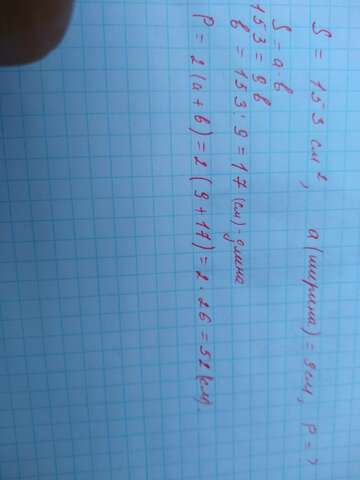 S = 153 см², a (ширина) = 9 см, P = ?
S = a · b
153 = 9 b
b = 153 : 9 = 17 (см) - длина
P = 2 (a + b) = 2 ( 9 + 17) = 2 · 26 = 52 (см)